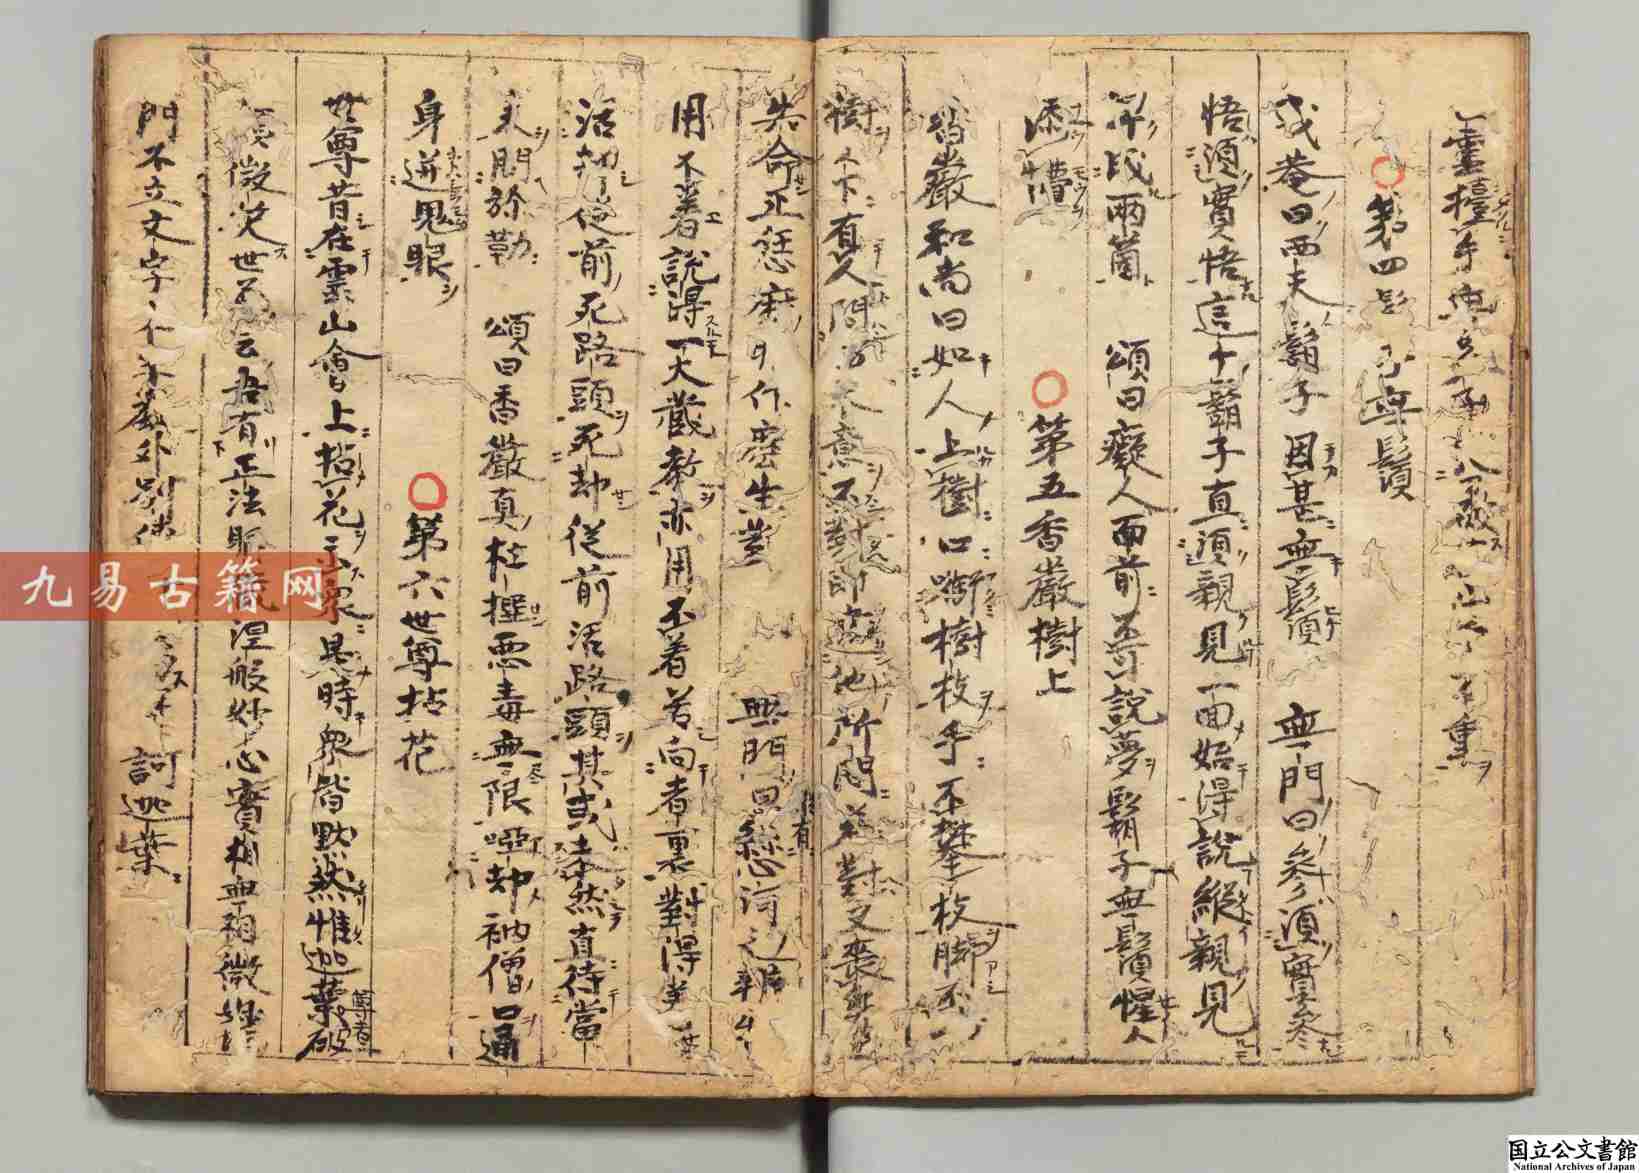 第四
或菴曰西天鬍子因甚無鬚 無門曰參須實參
悟須實悟這个鬍子直須親見一面始得說縱親見
早成兩箇 頌曰癡人面前不可說夢鬍子無鬚惺人
添懵
第五香嚴樹上
香嚴和尚曰如人上樹口啣樹枝手不攀枝脚不
樹下有人問 意不對即違他所問若對又喪
失命正恁麼時作麼生對 無門曰縱有懸河之辨
用不著說得一大藏教亦用不着若向者裏對得著
活却從前死路頭死却從前活路頭其或未然直待當
來問弥勒 頌曰香嚴真杜撰悪毒無限啞却衲僧口通
身迸鬼眼
第六世尊拈花
世尊昔在霊山會上拈花示衆是時衆皆默然惟迦葉尊者破
微笑世尊云吾有正法眼藏涅般妙心實相無相微
門不立文字 教外別傳 訶迦葉
九易古籍网
国立公文書館
National Archives of Japan